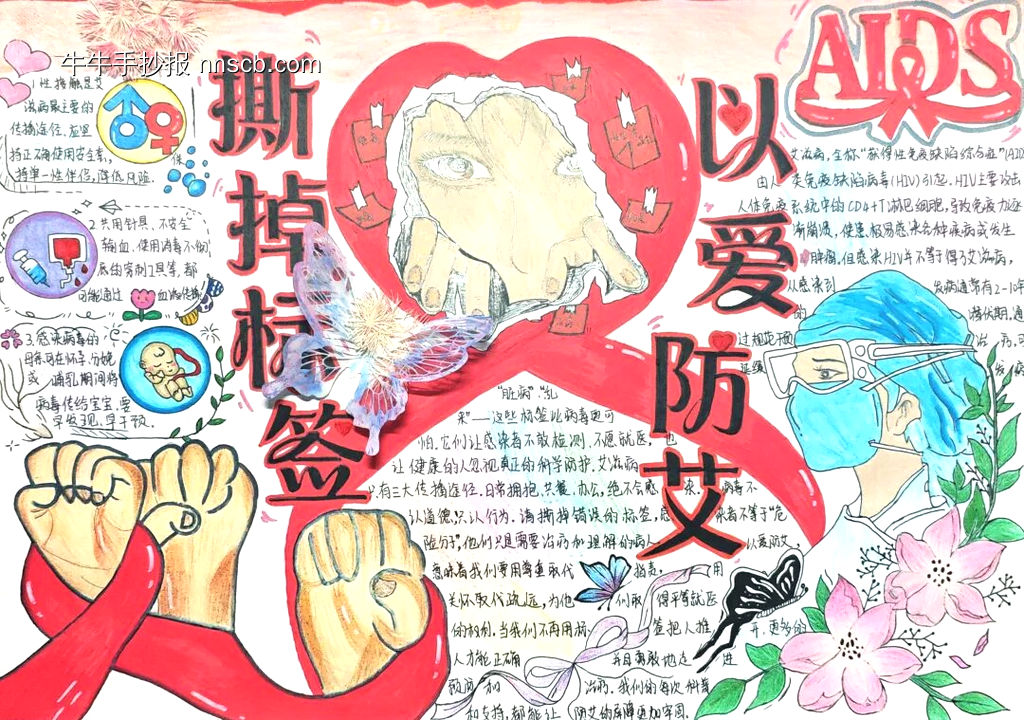 牛牛手抄报 nnscb.com
撕掉标签
以爱防艾
AIDS
1.性接触是艾
滋病最主要的
传播途径.应坚
持正确使用安全套,
保
持单一性伴侣,降低风险.
2.共用针具、不安全
输血、使用消毒不彻
底的穿刺工具等,都
可能通过 血液传播
3.感染病毒的
母亲可在怀孕、分娩
或 哺乳期间将
病毒传给宝宝,要
早发现、早干预.
艾滋病,全称“获得性免疫缺陷综合征”(AID
由人 类免疫缺陷病毒(HIV)引起.HIV主要攻击
人体免疫系统中的CD4+T淋巴细胞,导致免疫力逐
渐崩溃,使患
肿瘤.但感染HIV并不等于得了艾滋病,
从感染到 发病通常有2-10年
的 潜伏期,通
过规范干预 治 病,可
延缓 发 病
“脏病”、“乱
来”——这些标签比病毒更可
怕.它们让感染者不敢检测、不愿就医,也
让健康的人忽视真正的科学防护.艾滋病
只有三大传播途径,日常拥抱、共餐、办公,绝不会感 染. 病毒不
认道德,只认行为.请撕掉错误的标签,感 染者不等于“危
险分子”,他们只是需要治疗和理解的病人 以爱防艾,
意味着我们要用尊重取代 指责, 用
关怀取代疏远,为他 们取 得平等就医
的权利.当我们不再用病 签把人推 开,更多的
人才能正确 并且勇敢地走 进
预防和 治疗.我们的每次科普
和支持,都能让 防艾的屏障更加牢固.